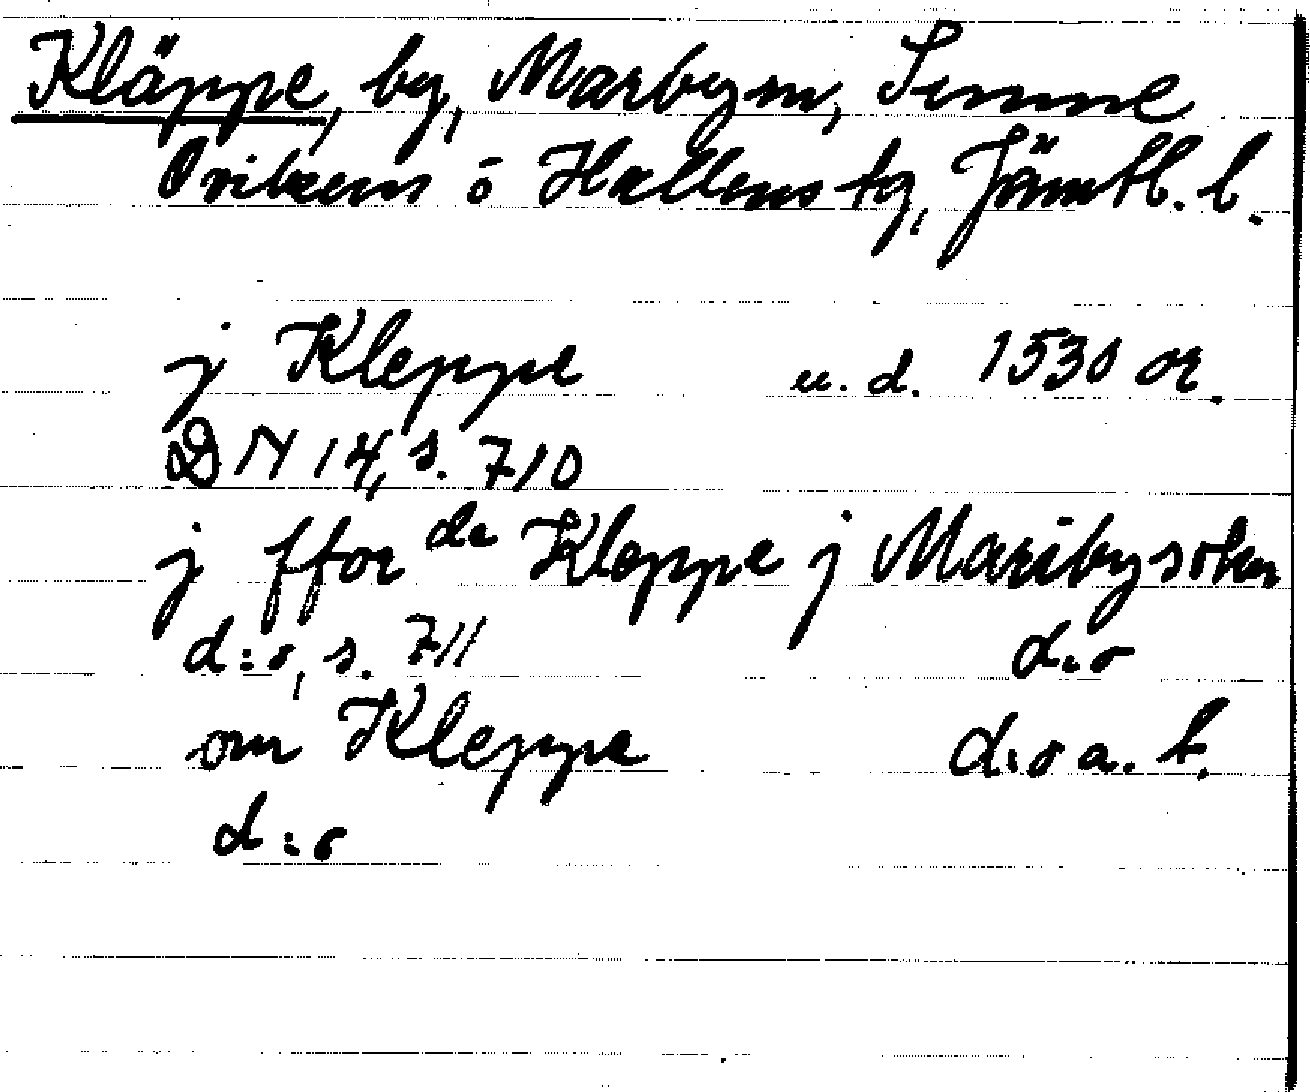 Kläppe, by, Marby sn, Sunne
Ovikens o Hallens tg, Jämtl. l.
j Kleppe u. d. 1530 or.
DN 14, s. 710
j ffor da Kleppe j Mariby soken
d:o, s. 711 d:o
om Kleppe d:o a. b.
d:o